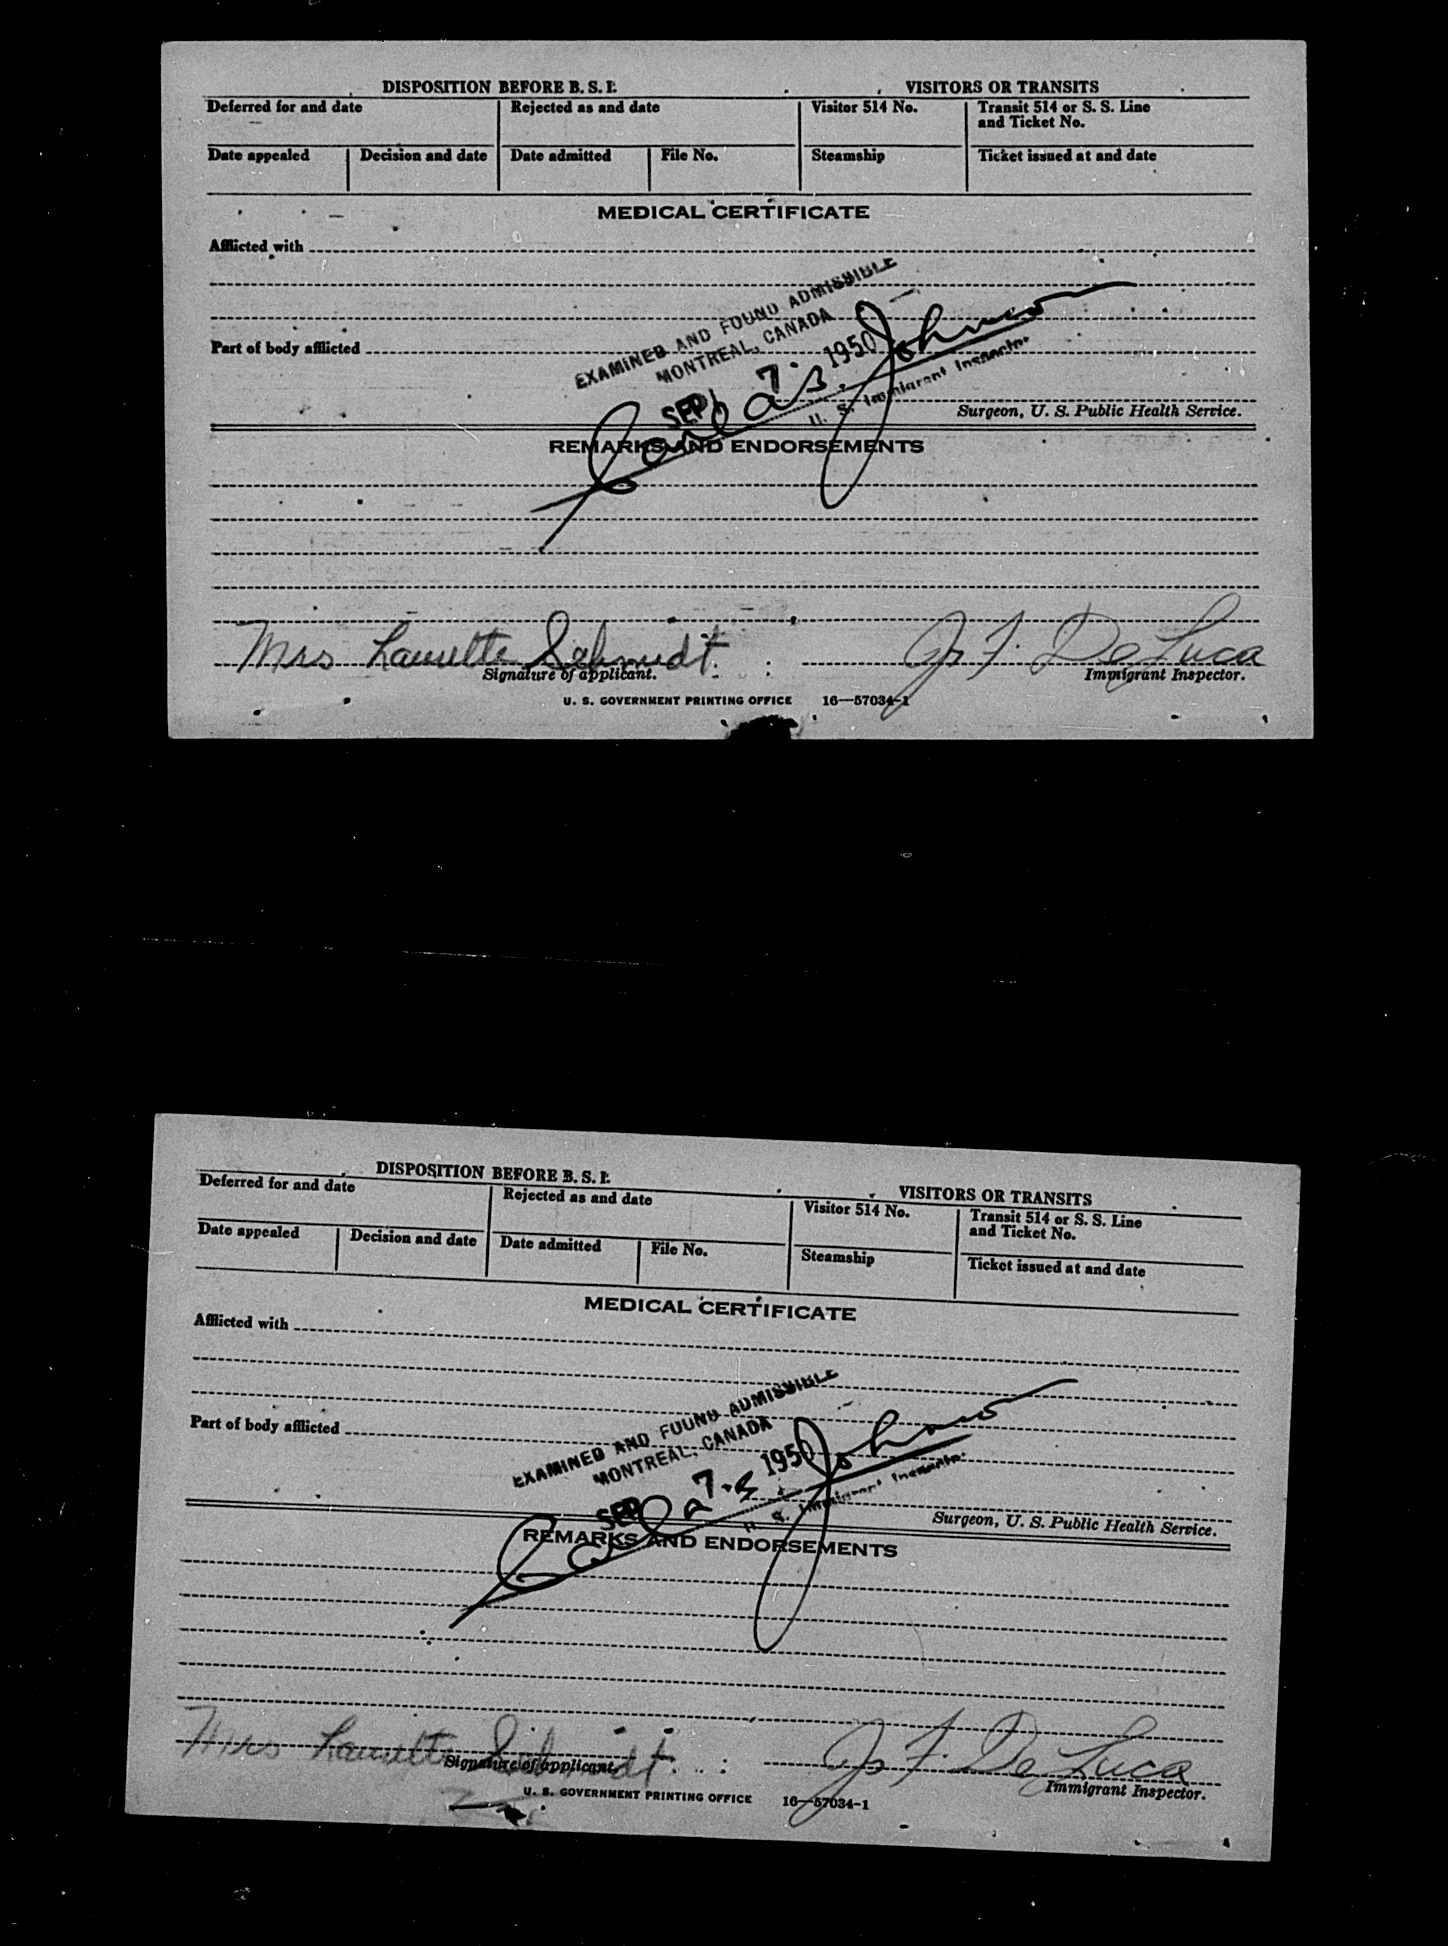 DISPOSITION BEFORE B. S. I. VISITORS OR TRANSITS
Deferred for and date Rejected as and date Visitor 514 No. Transit 514 or S. S. Line
and Ticket No.
Date appealed Decision and date Date admitted File No. Steamship Ticket issued at and date
MEDICAL CERTIFICATE
Afflicted with
EXAMINED AND FOUND ADMISSIBLE
MONTREAL, CANADA
Part of body afflicted
SEP 7 1950
Carl a. Johnson
U. S. Immigrant Inspector
Surgeon, U. S. Public Health Service.
REMARKS AND ENDORSEMENTS
Mrs Laurette Schmidt. Js F. De Luca
Signature of applicant. Immigrant Inspector.
U. S. GOVERNMENT PRINTING OFFICE 16—57034-1
DISPOSITION BEFORE B. S. I. VISITORS OR TRANSITS
Deferred for and date Rejected as and date Visitor 514 No. Transit 514 or S. S. Line
and Ticket No.
Date appealed Decision and date Date admitted File No. Steamship Ticket issued at and date
MEDICAL CERTIFICATE
Afflicted with
EXAMINED AND FOUND ADMISSIBLE
MONTREAL, CANADA
Part of body afflicted
SEP 7 1950
Carl a. Johnson
U. S. Immigrant Inspector
Surgeon, U. S. Public Health Service.
REMARKS AND ENDORSEMENTS
Mrs Laurette Schmidt. Js F. De Luca
Signature of applicant. Immigrant Inspector.
U. S. GOVERNMENT PRINTING OFFICE 16—57034-1